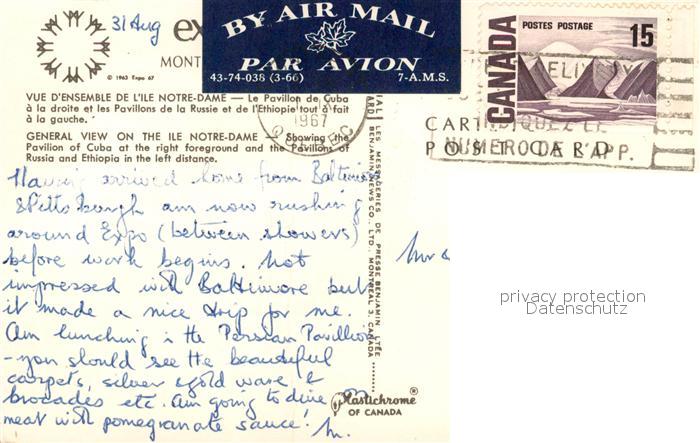 31 Aug
ex
© 1963 Expo 67
MONT
BY AIR MAIL
PAR AVION
43-74-038 (3-66) 7-A.M.S.
POSTES POSTAGE 15
CANADA
1967
QUEBEC
CARD
POST CARD
NUMERO DE L'APP.
VUE D'ENSEMBLE DE L'ILE NOTRE-DAME — Le Pavillon de Cuba
à la droite et les Pavillons de la Russie et de l'Ethiopie tout à fait
à la gauche.
GENERAL VIEW ON THE ILE NOTRE-DAME — Showing the
Pavilion of Cuba at the right foreground and the Pavilions of
Russia and Ethiopia in the left distance.
Having arrived home from Baltimore
& Pittsburgh am now rushing
around Expo (between showers)
before work begins. Not
impressed with Baltimore but
it made a nice trip for me.
Am lunching in the Persian Pavillion
- you should see the beautiful
carpets, silver & gold ware &
brocades etc. Am going to dine on
meat with pomegranate sauce! M.
Mr &
LES MESSAGERIES DE PRESSE BENJAMIN LTÉE
BENJAMIN NEWS CO. LTD., MONTREAL 3, CANADA
Plastichrome®
OF CANADA
privacy protection
Datenschutz